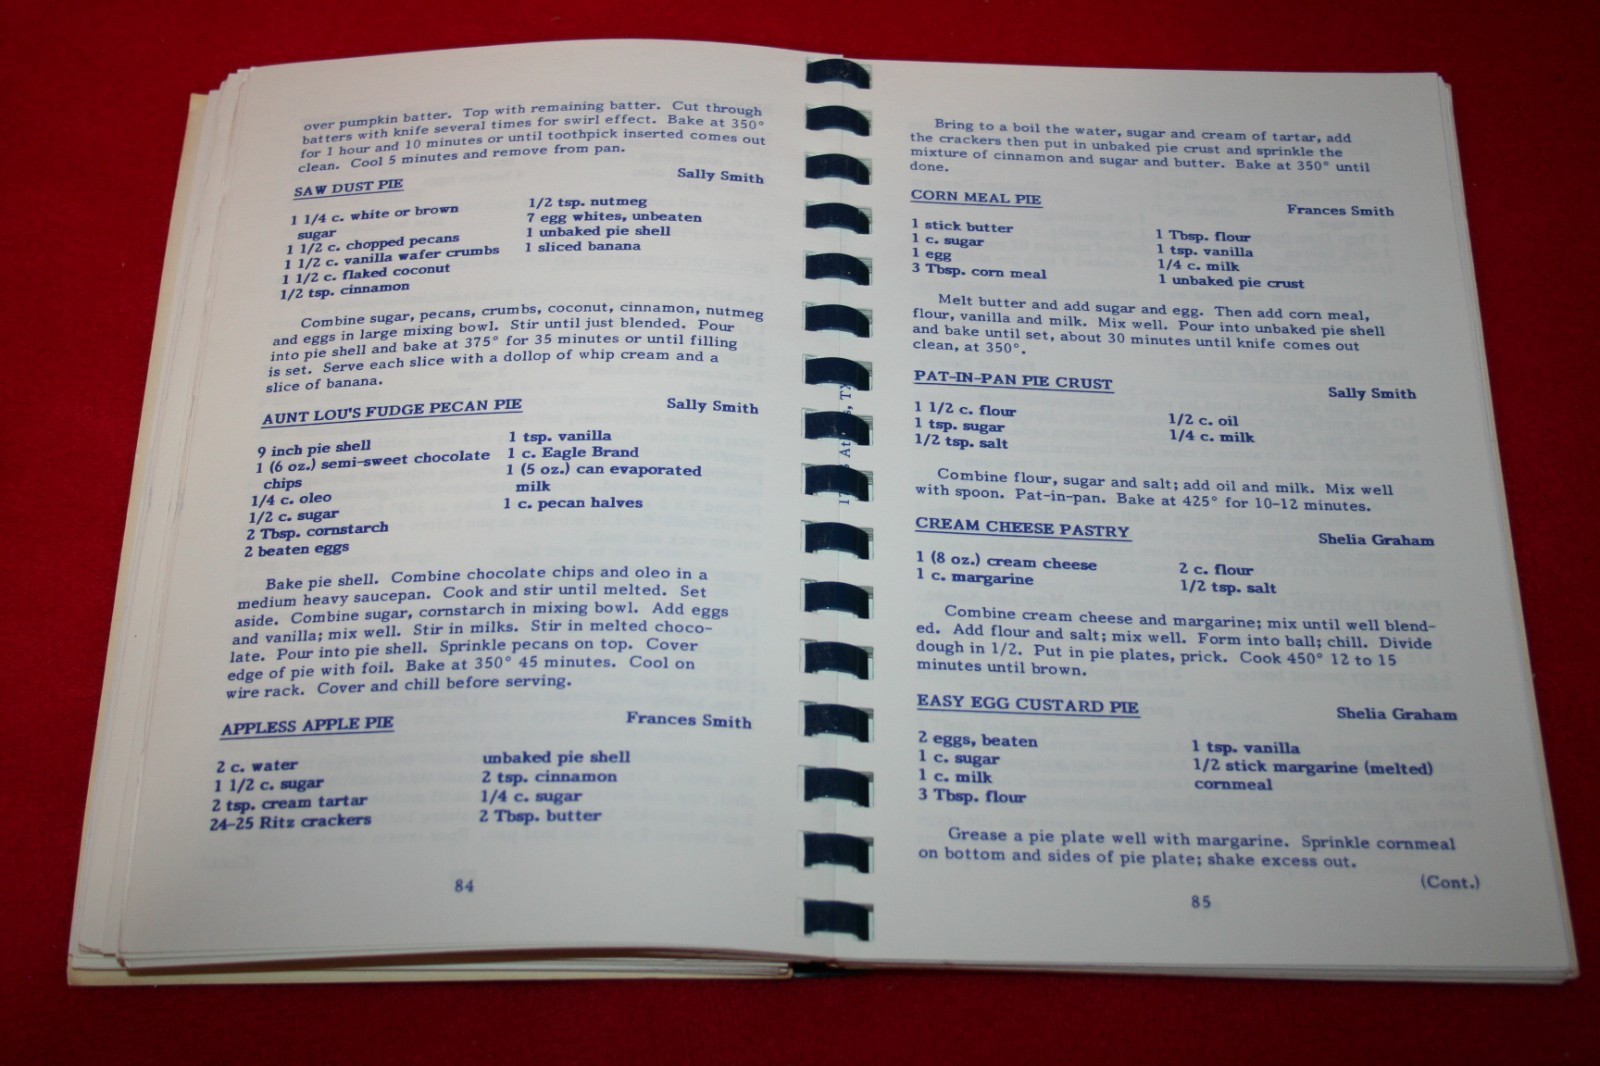 over pumpkin batter. Top with remaining batter. Cut through
batters with knife several times for swirl effect. Bake at 350°
for 1 hour and 10 minutes or until toothpick inserted comes out
clean. Cool 5 minutes and remove from pan.
SAW DUST PIE
Sally Smith
1 1/4 c. white or brown
sugar
1 1/2 c. chopped pecans
1 1/2 c. vanilla wafer crumbs
1 1/2 c. flaked coconut
1/2 tsp. cinnamon
1/2 tsp. nutmeg
7 egg whites, unbeaten
1 unbaked pie shell
1 sliced banana
Combine sugar, pecans, crumbs, coconut, cinnamon, nutmeg
and eggs in large mixing bowl. Stir until just blended. Pour
into pie shell and bake at 375° for 35 minutes or until filling
is set. Serve each slice with a dollop of whip cream and a
slice of banana.
AUNT LOU'S FUDGE PECAN PIE
Sally Smith
9 inch pie shell
1 (6 oz.) semi-sweet chocolate
chips
1/4 c. oleo
1/2 c. sugar
2 Tbsp. cornstarch
2 beaten eggs
1 tsp. vanilla
1 c. Eagle Brand
1 (5 oz.) can evaporated
milk
1 c. pecan halves
Bake pie shell. Combine chocolate chips and oleo in a
medium heavy saucepan. Cook and stir until melted. Set
aside. Combine sugar, cornstarch in mixing bowl. Add eggs
and vanilla; mix well. Stir in milks. Stir in melted choco-
late. Pour into pie shell. Sprinkle pecans on top. Cover
edge of pie with foil. Bake at 350° 45 minutes. Cool on
wire rack. Cover and chill before serving.
APPLESS APPLE PIE
Frances Smith
2 c. water
1 1/2 c. sugar
2 tsp. cream tartar
24-25 Ritz crackers
unbaked pie shell
2 tsp. cinnamon
1/4 c. sugar
2 Tbsp. butter
84
Bring to a boil the water, sugar and cream of tartar, add
the crackers then put in unbaked pie crust and sprinkle the
mixture of cinnamon and sugar and butter. Bake at 350° until
done.
CORN MEAL PIE
Frances Smith
1 stick butter
1 c. sugar
1 egg
3 Tbsp. corn meal
1 Tbsp. flour
1 tsp. vanilla
1/4 c. milk
1 unbaked pie crust
Melt butter and add sugar and egg. Then add corn meal,
flour, vanilla and milk. Mix well. Pour into unbaked pie shell
and bake until set, about 30 minutes until knife comes out
clean, at 350°.
PAT-IN-PAN PIE CRUST
Sally Smith
1 1/2 c. flour
1 tsp. sugar
1/2 tsp. salt
1/2 c. oil
1/4 c. milk
Combine flour, sugar and salt; add oil and milk. Mix well
with spoon. Pat-in-pan. Bake at 425° for 10-12 minutes.
CREAM CHEESE PASTRY
Shelia Graham
1 (8 oz.) cream cheese
1 c. margarine
2 c. flour
1/2 tsp. salt
Combine cream cheese and margarine; mix until well blend-
ed. Add flour and salt; mix well. Form into ball; chill. Divide
dough in 1/2. Put in pie plates, prick. Cook 450° 12 to 15
minutes until brown.
EASY EGG CUSTARD PIE
Shelia Graham
2 eggs, beaten
1 c. sugar
1 c. milk
3 Tbsp. flour
1 tsp. vanilla
1/2 stick margarine (melted)
cornmeal
Grease a pie plate well with margarine. Sprinkle cornmeal
on bottom and sides of pie plate; shake excess out.
(Cont.)
85